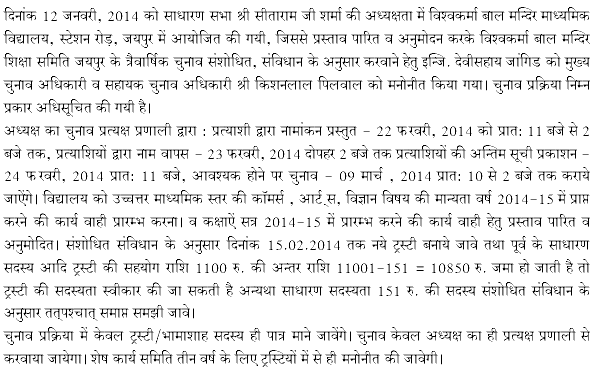 दिनांक 12 जनवरी, 2014 को साधारण सभा श्री सीताराम जी शर्मा की अध्यक्षता में विश्वकर्मा बाल मन्दिर माध्यमिक
विद्यालय, स्टेशन रोड़, जयपुर में आयोजित की गयी, जिससे प्रस्ताव पारित व अनुमोदन करके विश्वकर्मा बाल मन्दिर
शिक्षा समिति जयपुर के त्रैवार्षिक चुनाव संशोधित, संविधान के अनुसार करवाने हेतु इन्जि. देवीसहाय जांगिड को मुख्य
चुनाव अधिकारी व सहायक चुनाव अधिकारी श्री किशनलाल पिलवाल को मनोनीत किया गया। चुनाव प्रक्रिया निम्न
प्रकार अधिसूचित की गयी है।
अध्यक्ष का चुनाव प्रत्यक्ष प्रणाली द्वारा : प्रत्याशी द्वारा नामांकन प्रस्तुत – 22 फरवरी, 2014 को प्रात: 11 बजे से 2
बजे तक, प्रत्याशियों द्वारा नाम वापस – 23 फरवरी, 2014 दोपहर 2 बजे तक प्रत्याशियों की अन्तिम सूची प्रकाशन –
24 फरवरी, 2014 प्रात: 11 बजे, आवश्यक होने पर चुनाव – 09 मार्च , 2014 प्रात: 10 से 2 बजे तक कराये
जाऐंगे। विद्यालय को उच्चत्तर माध्यमिक स्तर की कॉमर्स , आर्ट्स, विज्ञान विषय की मान्यता वर्ष 2014-15 में प्राप्त
करने की कार्य वाही प्रारम्भ करना। व कक्षाऐं सत्र 2014-15 में प्रारम्भ करने की कार्य वाही हेतु प्रस्ताव पारित व
अनुमोदित। संशोधित संविधान के अनुसार दिनांक 15.02.2014 तक नये ट्रस्टी बनाये जावे तथा पूर्व के साधारण
सदस्य आदि ट्रस्टी की सहयोग राशि 1100 रु. की अन्तर राशि 11001-151 = 10850 रु. जमा हो जाती है तो
ट्रस्टी की सदस्यता स्वीकार की जा सकती है अन्यथा साधारण सदस्यता 151 रु. की सदस्य संशोधित संविधान के
अनुसार तत्पश्चात् समाप्त समझी जावे।
चुनाव प्रक्रिया में केवल ट्रस्टी/भामाशाह सदस्य ही पात्र माने जावेंगे। चुनाव केवल अध्यक्ष का ही प्रत्यक्ष प्रणाली से
करवाया जायेगा। शेष कार्य समिति तीन वर्ष के लिए ट्रस्टियों में से ही मनोनीत की जावेगी।